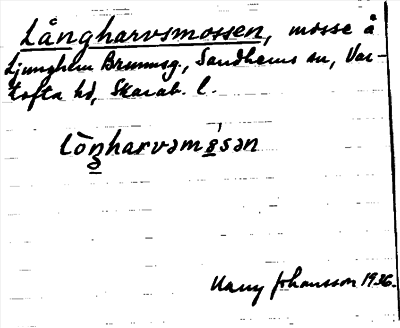 Långharvsmossen, mosse å
Ljunghem Brunnsg., Sandhems sn, Var-
tofta hd, Skarab. l.
lo̅ŋharvəmo̱sən
Harry Johansson 1936.